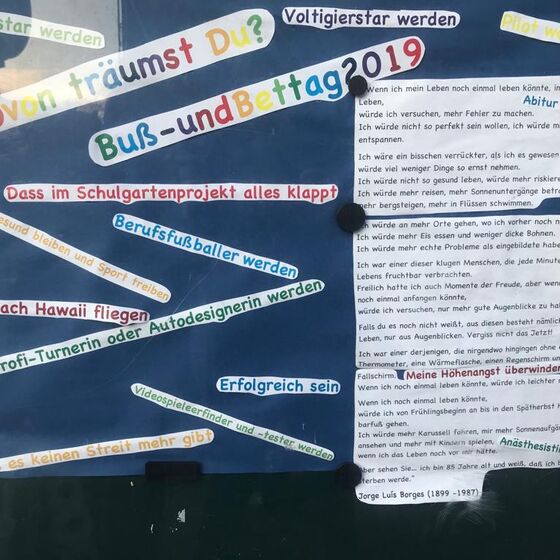 star werden
Voltigierstar werden
Pilot
von träumst Du?
Buß-und Bettag 2019
Dass im Schulgartenprojekt alles klappt
Berufsfußballer werden
gesund bleiben und Sport treiben
nach Hawaii fliegen
Profi-Turnerin oder Autodesignerin werden
Erfolgreich sein
Videospieleerfinder und -tester werden
es keinen Streit mehr gibt
Wenn ich mein Leben noch einmal leben könnte, im
Leben,
Abitur
würde ich versuchen, mehr Fehler zu machen.
Ich würde nicht so perfekt sein wollen, ich würde mi
entspannen.
Ich wäre ein bisschen verrückter, als ich es gewesen
würde viel weniger Dinge so ernst nehmen.
Ich würde nicht so gesund leben, würde mehr riskiere
Ich würde mehr reisen, mehr Sonnenuntergänge betra
mehr bergsteigen, mehr in Flüssen schwimmen.
Ich würde an mehr Orte gehen, wo ich vorher noch n
Ich würde mehr Eis essen und weniger dicke Bohnen.
Ich würde mehr echte Probleme als eingebildete habe
Ich war einer dieser klugen Menschen, die jede Minute
Lebens fruchtbar verbrachten.
Freilich hatte ich auch Momente der Freude, aber wenn
noch einmal anfangen könnte,
würde ich versuchen, nur mehr gute Augenblicke zu hab
Falls du es noch nicht weißt, aus diesen besteht nämlich
Leben, nur aus Augenblicken. Vergiss nicht das Jetzt!
Ich war einer derjenigen, die nirgendwo hingingen ohne e
Thermometer, eine Wärmeflasche, einen Regenschirm un
Fallschirm.
Meine Höhenangst überwinden
Wenn ich noch einmal leben könnte, würde ich leichter
Wenn ich noch einmal leben könnte,
würde ich von Frühlingsbeginn an bis in den Spätherbst h
barfuß gehen.
Ich würde mehr Karussell fahren, mir mehr Sonnenaufgä
ansehen und mehr mit Kindern spielen,
Anästhesisti
wenn ich das Leben noch vor mir hätte.
Aber sehen Sie... ich bin 85 Jahre alt und weiß, daß ich b
sterben werde."
Jorge Luís Borges (1899 -1987)